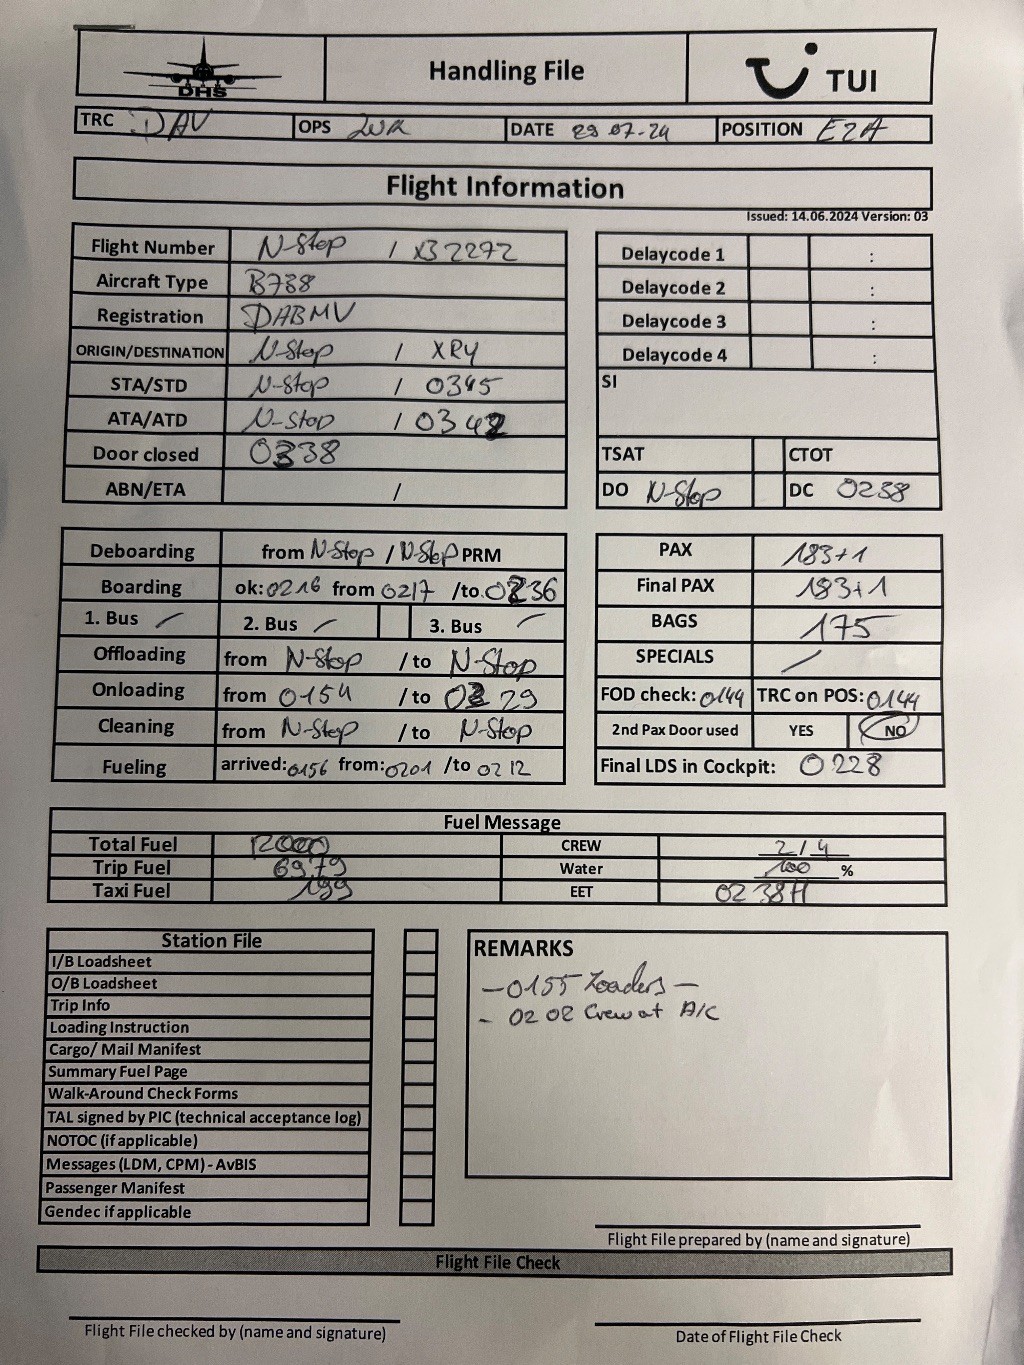 DHS
Handling File
TUI
TRC DAV OPS DATE 29.07.24 POSITION E22A
Flight Information
Issued: 14.06.2024 Version: 03
Flight Number N-Stop / X32272
Aircraft Type B738
Registration DABMV
ORIGIN/DESTINATION N-Stop / XRY
STA/STD N-Stop / 0345
ATA/ATD N-Stop / 0342
Door closed 0338
ABN/ETA /
Delaycode 1 :
Delaycode 2 :
Delaycode 3 :
Delaycode 4 :
SI
TSAT CTOT
DO N-Stop DC 0238
Deboarding from N-Stop / N-Stop PRM
Boarding ok: 0216 from 0217 /to 0236
1. Bus / 2. Bus / 3. Bus /
Offloading from N-Stop /to N-Stop
Onloading from 0154 /to 0229
Cleaning from N-Stop /to N-Stop
Fueling arrived: 0156 from: 0201 /to 0212
PAX 183+1
Final PAX 183+1
BAGS 175
SPECIALS /
FOD check: 0144 TRC on POS: 0144
2nd Pax Door used YES NO
Final LDS in Cockpit: 0228
Fuel Message
Total Fuel 12000 CREW 2/4
Trip Fuel 6979 Water 100 %
Taxi Fuel 199 EET 0238H
Station File
I/B Loadsheet
O/B Loadsheet
Trip Info
Loading Instruction
Cargo/ Mail Manifest
Summary Fuel Page
Walk-Around Check Forms
TAL signed by PIC (technical acceptance log)
NOTOC (if applicable)
Messages (LDM, CPM) - AvBIS
Passenger Manifest
Gendec if applicable
REMARKS
- 0155 Loaders -
- 0208 Crew at A/C
Flight File prepared by (name and signature)
Flight File Check
Flight File checked by (name and signature)
Date of Flight File Check